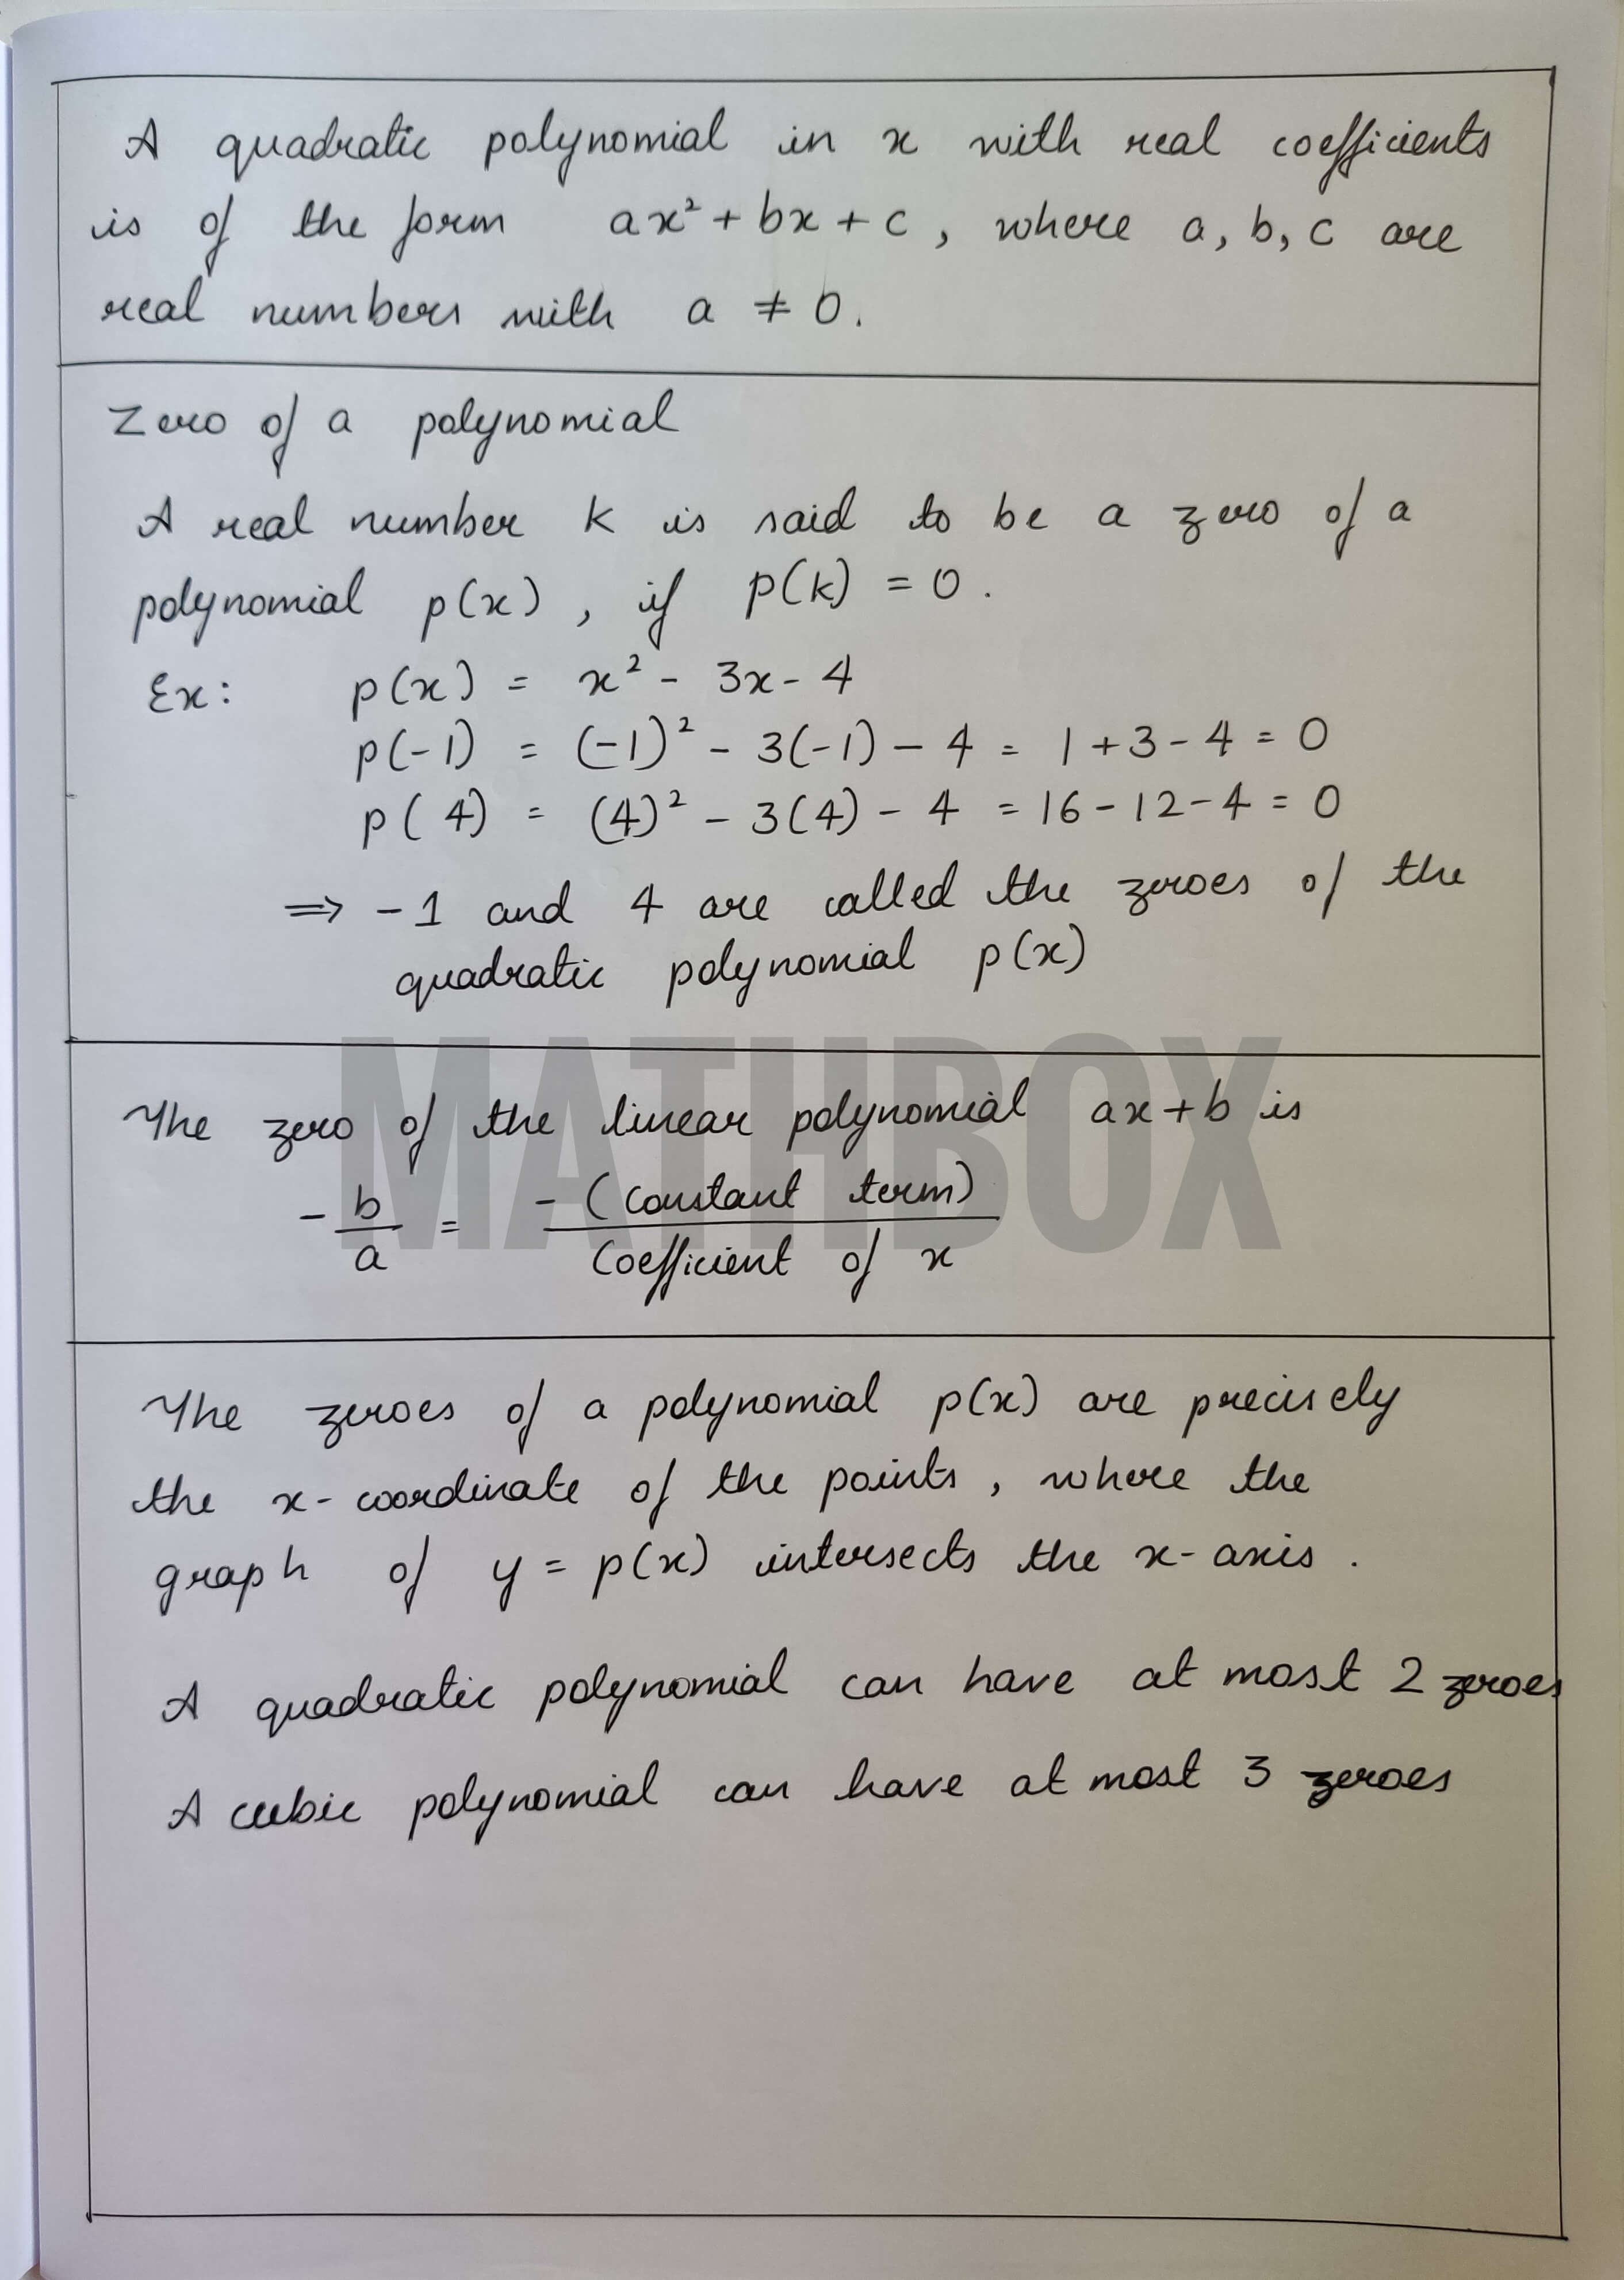 A quadratic polynomial in x with real coefficients
is of the form ax² + bx + c, where a, b, c are
real numbers with a ≠ 0.
Zero of a polynomial
A real number k is said to be a zero of a
polynomial p(x), if p(k) = 0.
Ex: p(x) = x² - 3x - 4
p(-1) = (-1)² - 3(-1) - 4 = 1 + 3 - 4 = 0
p(4) = (4)² - 3(4) - 4 = 16 - 12 - 4 = 0
⇒ -1 and 4 are called the zeroes of the
quadratic polynomial p(x)
MATHBOX
The zero of the linear polynomial ax + b is
-b/a = -(Constant term)/Coefficient of x
The zeroes of a polynomial p(x) are precisely
the x-coordinate of the points, where the
graph of y = p(x) intersects the x-axis.
A quadratic polynomial can have at most 2 zeroes
A cubic polynomial can have at most 3 zeroes